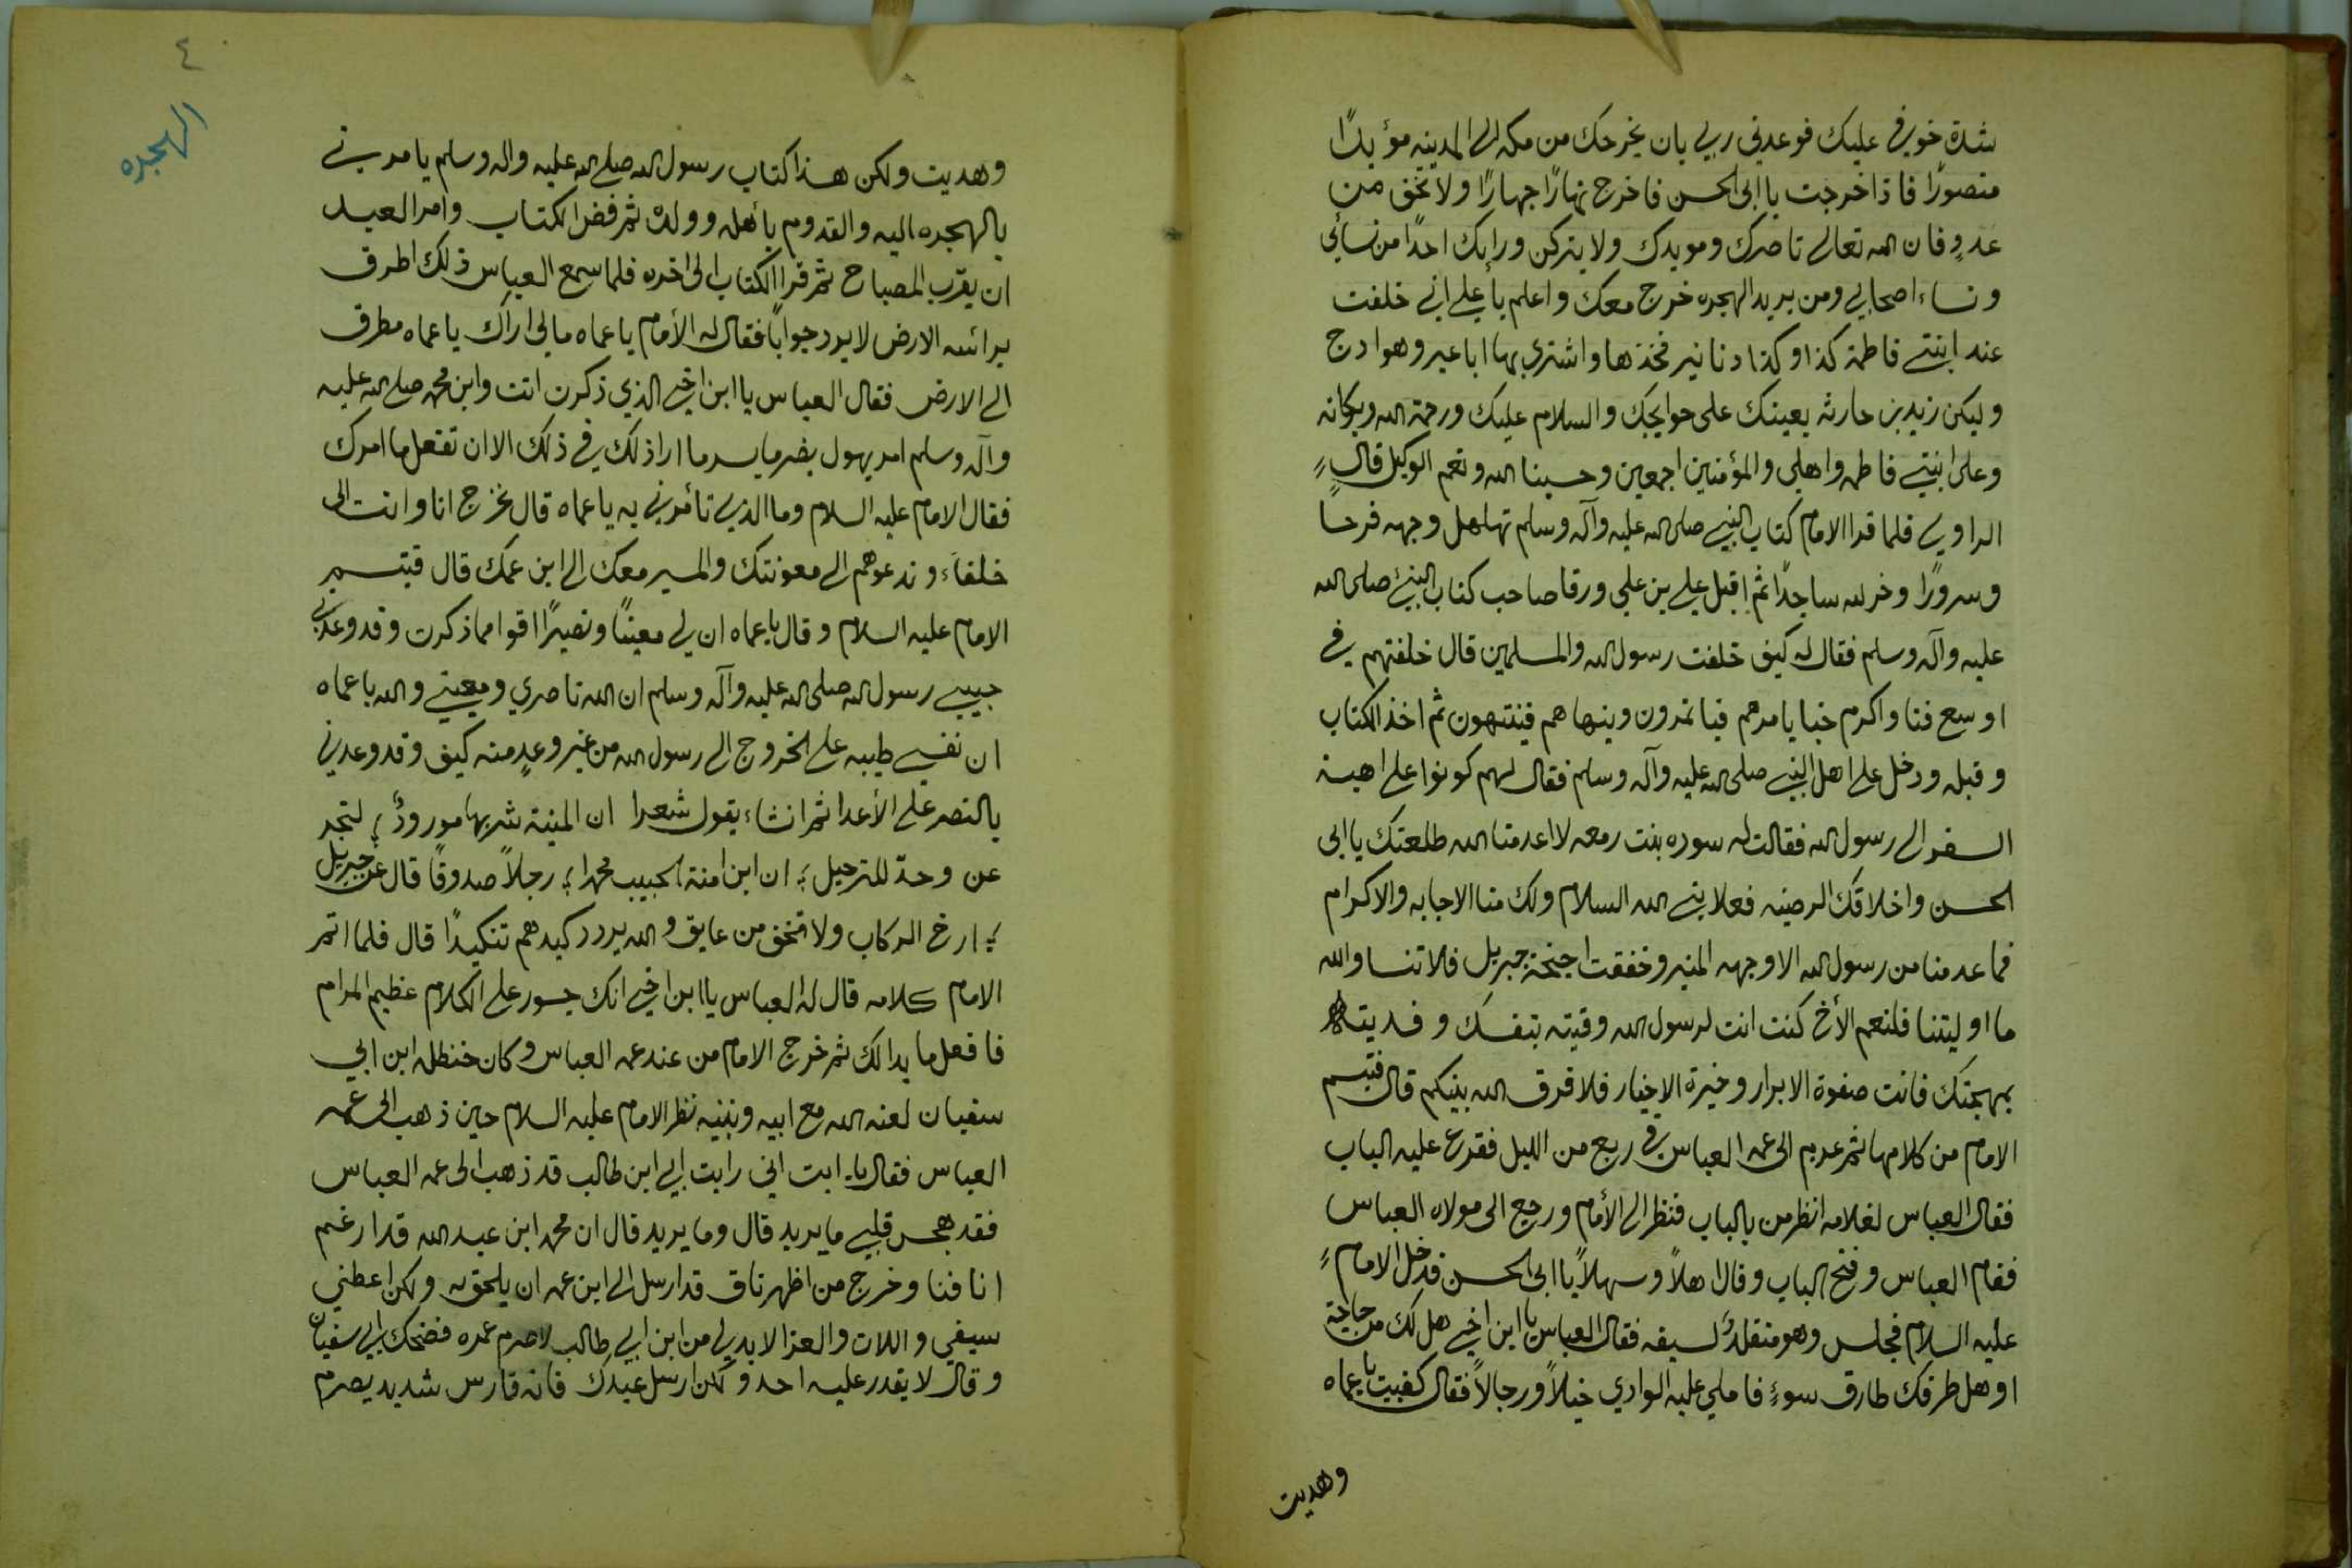 شدة خوفي عليك فوعدني ربي بان يخرجك من مكه الى المدينه مؤيدًا
منصورًا فاذا خرجت يا ابى الحسن فاخرج نهارًا جهارًا ولا تخف من
عدوٍ فان الله تعالى ناصرك ومويدك ولا يتركن ورايك احدًا من نسائي
ونساء اصحابي ومن يريد الهجره خرج معك واعلم يا علي اني خلفت
عند ابنتي فاطمة كذا وكذا دنانير فخذها واشتري بها اباعير وهوادج
وليكن زيد بن حارثه يعينك على حوايجك والسلام عليك ورحمة الله وبركاته
وعلى ابنتي فاطمه واهلي والمؤمنين اجمعين وحسبنا الله ونعم الوكيل قال
الراوي فلما قرا الامام كتاب النبي صلى الله عليه وآله وسلم تهلهل وجهه فرحًا
وسرورًا وخر لله ساجدًا ثم اقبل علي بن علي ورقا صاحب كتاب النبئ صلى الله
عليه وآله وسلم فقال له كيف خلفت رسول الله والمسلمين قال خلفتهم في
اوسع فنا واكرم خبا يامرهم فياتمرون وينهاهم فينتهون ثم اخذ الكتاب
وقبله ودخل على اهل النبي صلى الله عليه وآله وسلم فقال لهم كونوا على اهبة
السفر الى رسول الله فقالت له سوده بنت زمعه لا اعدمنا الله طلعتك يا ابى
الحسن واخلاقك الرضيه فعلا بني الله السلام ولك منا الاجابه والاكرام
فما عدمنا من رسول الله الا وجهه المنير وخفقت اجنحة جبريل فلا تنسا والله
ما اوليتنا فلنعم الأخ كنت انت لرسول الله وقيته بنفسك وفديته
بمهجتك فانت صفوة الابرار وخيرة الاخيار فلا فرق الله بينكم قال فتبسم
الامام من كلامها ثم عدم الى عمه العباس في ربع من الليل فقرع عليه الباب
فقال العباس لغلامه انظر من بالباب فنظر الى الأمام ورجع الى مولاه العباس
فقام العباس وفتح الباب وقال اهلاً وسهلاً يا ابى الحسن فدخل الامام
عليه السلام فجلس وهو متقلدٌ لسيفه فقال العباس يا ابن اخي هل لك من حاجة
او هل طرقك طارق سوءٍ فاملي عليه الوادي خيلاً ورجالاً فقال كفيت يا عماه
وهديت
٤
الهجره
وهديت ولكن هذا كتاب رسول الله صلى الله عليه واله وسلم يامرني
بالهجره اليه والقدوم بأهله وولده ثم رفض الكتاب وامر العبد
ان يقرب المصباح ثم قرا الكتاب الى اخره فلما سمع العباس ذلك اطرق
برائسه الارض لا يرد جوابًا فقال له الأمام يا عماه مالي اراك يا عماه مطرق
الى الارض فقال العباس يا ابن اخي الذي ذكرت انت وابن محمد صلى الله عليه
وآله وسلم امر يهول يضر ما يسر ما اراذلك في ذلك الا ان تفعل ما امرك
فقال الامام عليه السلام وما الذي تأمرني به يا عماه قال نخرج انا وانت الى
خلفاء وندعوهم الى معونتك والمسير معك الى ابن عمك قال فتبسم
الامام عليه السلام وقال يا عماه ان لي معينًا ونصيرًا اقوا مما ذكرت وقد وعدني
حبيبي رسول الله صلى الله عليه وآله وسلم ان الله ناصري ومعيني والله يا عماه
ان نفسي طيبه على الخروج الى رسول الله من غير وعدٍ منه كيف وقد وعدني
بالنصر على الأعدا ثم انشاء يقول شعرا ان المنية شربها مورودٌ لتجد
عن وحدٌ للترحيل ان ابن امنة الحبيب محمدا رجلاً صدوقًا قال عن جبريل
ارخ الركاب ولا تخف من عايق والله يردد كيدهم تنكيدًا قال فلما اتم
الامام كلامه قال له العباس يا ابن اخي انك جسور على الكلام عظيم المرام
فافعل ما بدا لك ثم خرج الامام من عند عمه العباس وكان حنظله ابن ابي
سفيان لعنه الله مع ابيه وبنيه نظر الامام عليه السلام حين ذهب الى عمه
العباس فقال يا ابت اني رايت ابي ابن طالب قد ذهب الى عمه العباس
فقد هجس قلبي ما يريد قال وما يريد قال ان محمد ابن عبد الله قد ارغم
انافنا وخرج من اظهرناق قد ارسل الى ابن عمه ان يلحق به ولكن اعطني
سيفي واللات والعزا لا بد لي من ابن ابي طالب لاصرم عمره فضحك ابي سفيان
وقال لا يقدر عليه احد ولكن ارسل عبدك فانه فارس شديد يصرم